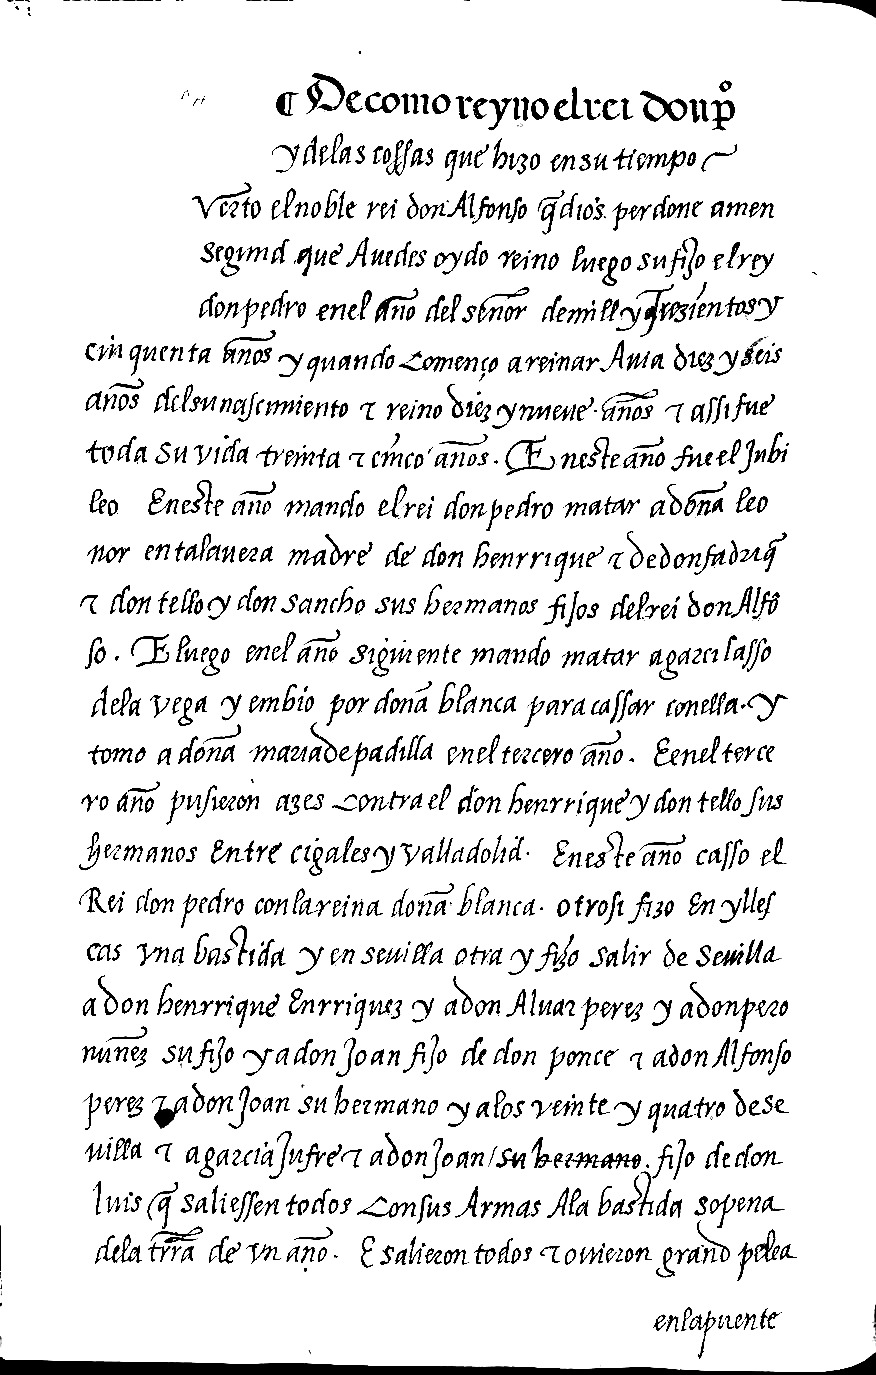 ¶ De como reyno el rei don pº
y de las cossas que hizo en su tiempo
Verto el noble rei don Alfonso q̃ dios perdone amen
segund que Auedes oydo reino luego su fijo el rey
don pedro en el año del señor de mill y trezientos y
cinquenta años y quando Començo a reinar Auia diez y seis
años del su nascimiento τ reino diez y nueue años τ assi fue
toda su vida treinta τ cinco años. En este año fue el Jubi
leo En este año mando el rei don pedro matar a doña leo
nor en talauera madre de don henrrique τ de don fadriq̃
τ don tello y don sancho sus hermanos fijos del rei don Alfõ
so. E luego en el año siguiente mando matar a garcilasso
dela vega y embio por doña blanca para cassar con ella. y
tomo a doña maria de padilla en el tercero año. E en el terce
ro año pusieron azes Contra el don henrrique y don tello sus
hermanos Entre cigales y valladolid. En este año casso el
Rei don pedro con la reina doña blanca. otrosi fizo En ylles
cas vna bastida y en seuilla otra y fizo salir de Seuilla
a don henrrique Enrriquez y a don Aluar perez y a don pero
nuñez su fijo y a don Joan fijo de don ponce τ a don Alfonso
perez τ a don Joan su hermano y a los veinte y quatro de se
uilla τ a garcia Jufre τ a don Joan / su hermano. fijo de don
luis q̃ saliessen todos Con sus Armas A la bastida so pena
dela trr̃a de vn año. E salieron todos τ ouieron grand pelea
en la puente